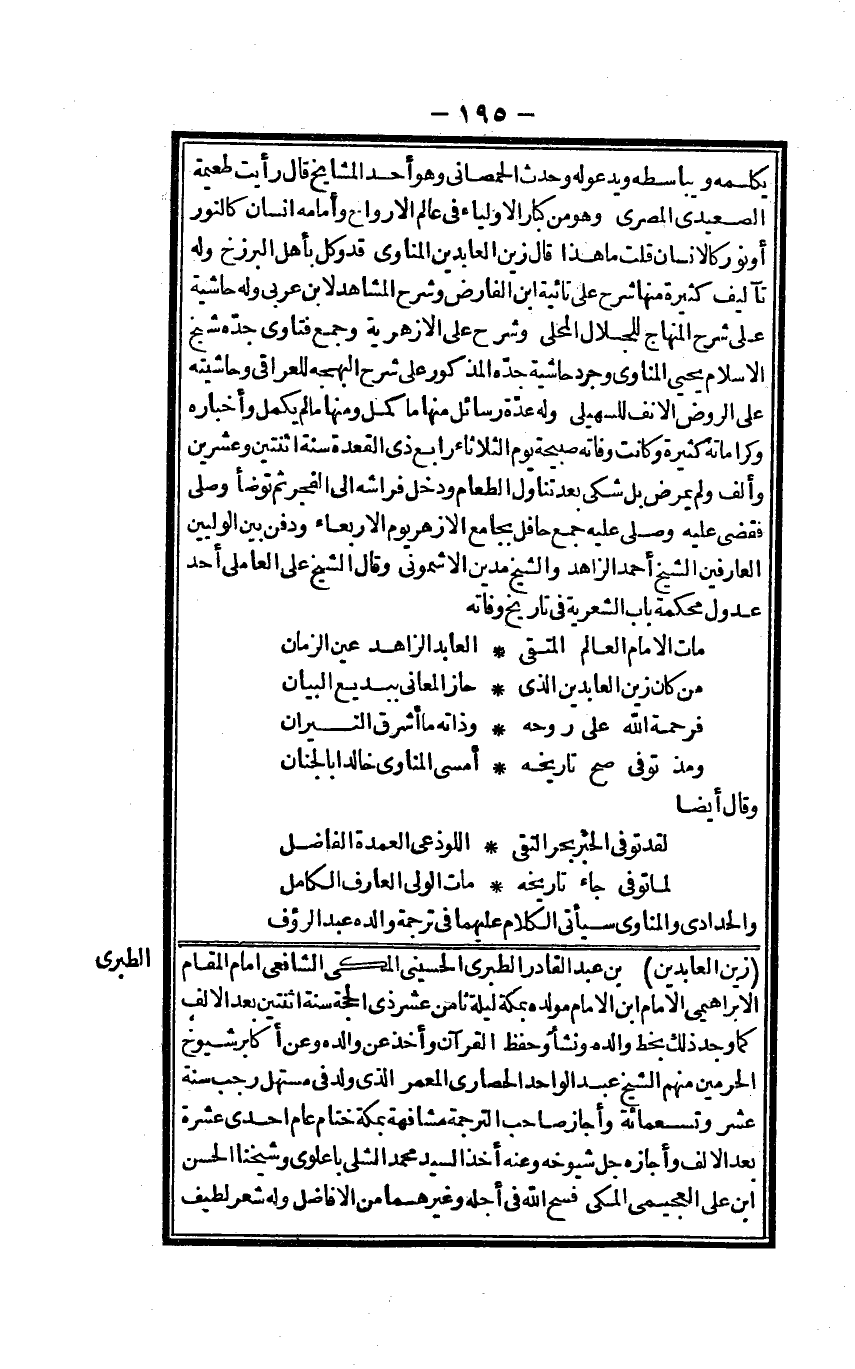 — ١٩٥ —
يكلمه ويباسطه ويدعوله وحدث الحمصانى وهو أحد المشايخ قال رأيت طعيمة
الصعيدى المصرى وهو من كبار الاولياء فى عالم الارواح وأمامه انسان كالنور
أو نور كالانسان قلت ما هذا قال زين العابدين المناوى قد وكل بأهل البرزخ وله
تآليف كثيرة منها شرح على تائية ابن الفارض وشرح المشاهد لابن عربى وله حاشية
على شرح المنهاج للجلال المحلى وشرح على الازهرية وجمع فتاوى جده شيخ
الاسلام يحيى المناوى وجرد حاشية جده المذكور على شرح البهجه للعراقى وحاشيته
على الروض الانف للسهيلى وله عدة رسائل منها ما كمل ومنها ما لم يكمل وأخباره
وكراماته كثيرة وكانت وفاته صبيحة يوم الثلاثاء رابع ذى القعدة سنة اثنتين وعشرين
وألف ولم يمرض بل شكى بعد تناول الطعام ودخل فراشه الى الفجر ثم توضأ وصلى
فقضى عليه وصلى عليه جمع حافل بجامع الازهر يوم الاربعاء ودفن بين الوليين
العارفين الشيخ أحمد الزاهد والشيخ مدين الاشمونى وقال الشيخ على العاملى أحد
عدول محكمة باب الشعرية فى تاريخ وفاته
مات الامام العالم المتقى * العابد الزاهد عين الزمان
من كان زين العابدين الذى * حاز المعانى ببديع البيان
فرحمة الله على روحه * وذاته ما أشرق النيران
ومذ توفى صح تاريخه * أمسى المناوى خالدا بالجنان
وقال أيضا
لقد توفى الحبر بحر التقى * اللوذعى العمدة الفاضل
لما توفى جاء تاريخه * مات الولى العارف الكامل
والحدادى والمناوى سيأتى الكلام عليهما فى ترجمة والده عبد الرؤف
الطبرى
(زين العابدين) بن عبد القادر الطبرى الحسينى المكى الشافعى امام المقام
الابراهيمى الامام ابن الامام مولده بمكة ليلة ثامن عشر ذى الحجة سنة اثنتين بعد الالف
كما وجد ذلك بخط والده ونشأ وحفظ القرآن وأخذ عن والده وعن أكابر شيوخ
الحرمين منهم الشيخ عبد الواحد الحصارى المعمر الذى ولد فى مستهل رجب سنة
عشر وتسعمائة وأجاز صاحب الترجمة مشافهة بمكة ختام عام احدى عشرة
بعد الالف وأجازه جل شيوخه وعنه أخذ السيد محمد الشلى باعلوى وشيخنا الحسن
ابن على العجيمى المكى فسح الله فى أجله وغيرهما من الافاضل وله شعر لطيف